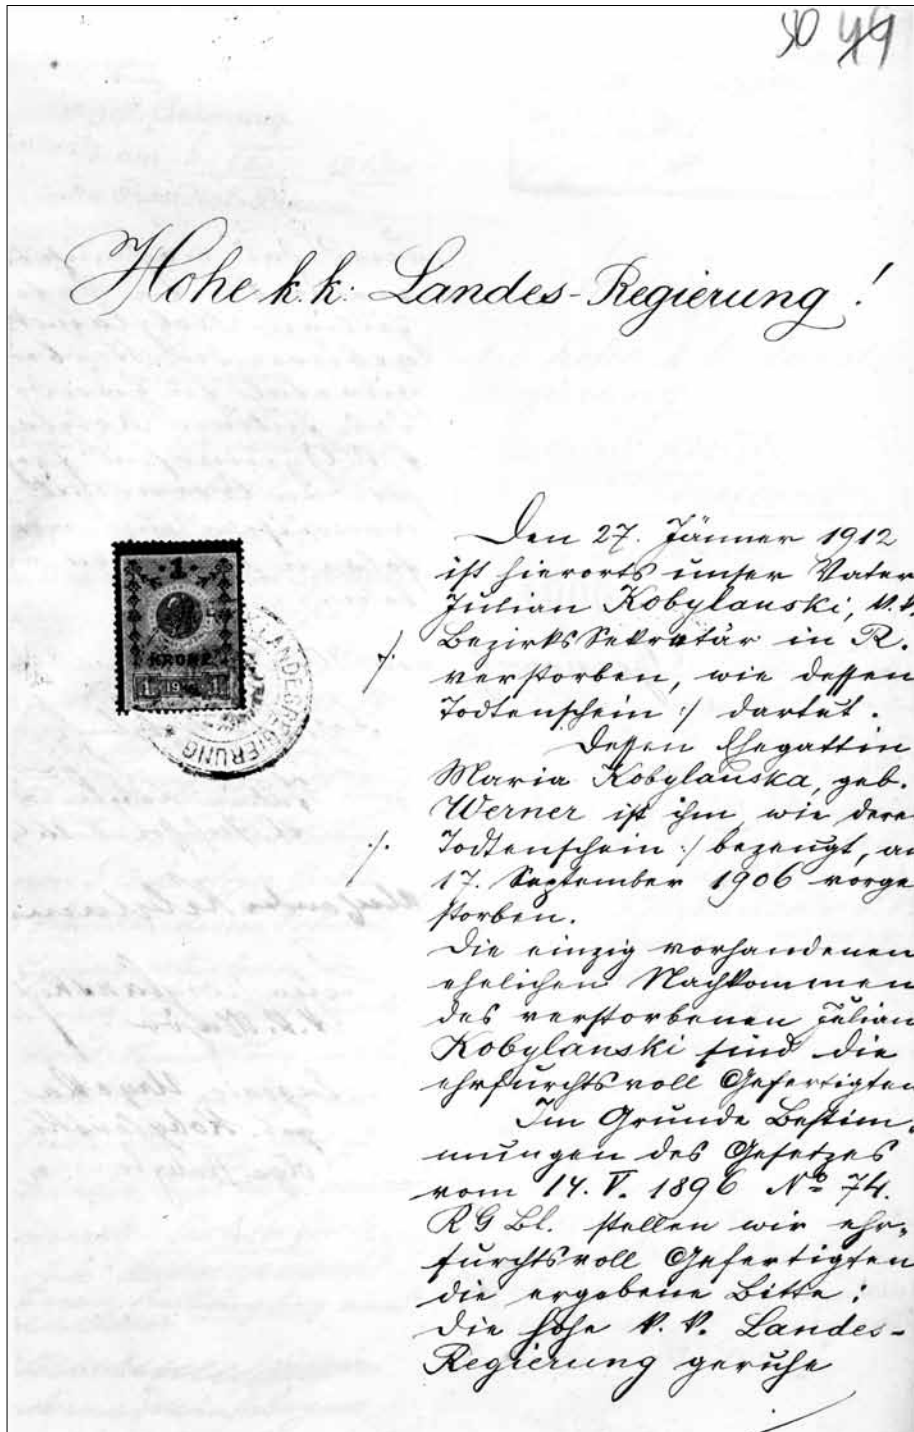 50 49
Hohe k. k. Landes-Regierung!
Den 27. Jänner 1912
ist hierorts unser Vater
Julian Kobylanski, k. k.
Bezirks Sekretär in R.
verstorben, wie dessen
Todtenschein ·/. dartut.
Dessen Ehegattin
Maria Kobylanska, geb.
Werner ist ihm wie dere
Todtenschein ·/. bezeugt, a
17. September 1906 vorge
storben.
Die einzig vorhandenen
ehelichen Nachkommen
des verstorbenen Julian
Kobylanski sind die
ehrfurchtsvoll Gefertigten
Im Grunde Bestim-
mungen des Gesetzes
vom 14. V. 1896 No 74.
RGBl. stellen wir ehr-
furchtsvoll Gefertigten
die ergebene Bitte:
Die hohe k. k. Landes-
Regierung geruhe
·/.
·/.
1
KRONE
1 1
LANDESREGIERUNG